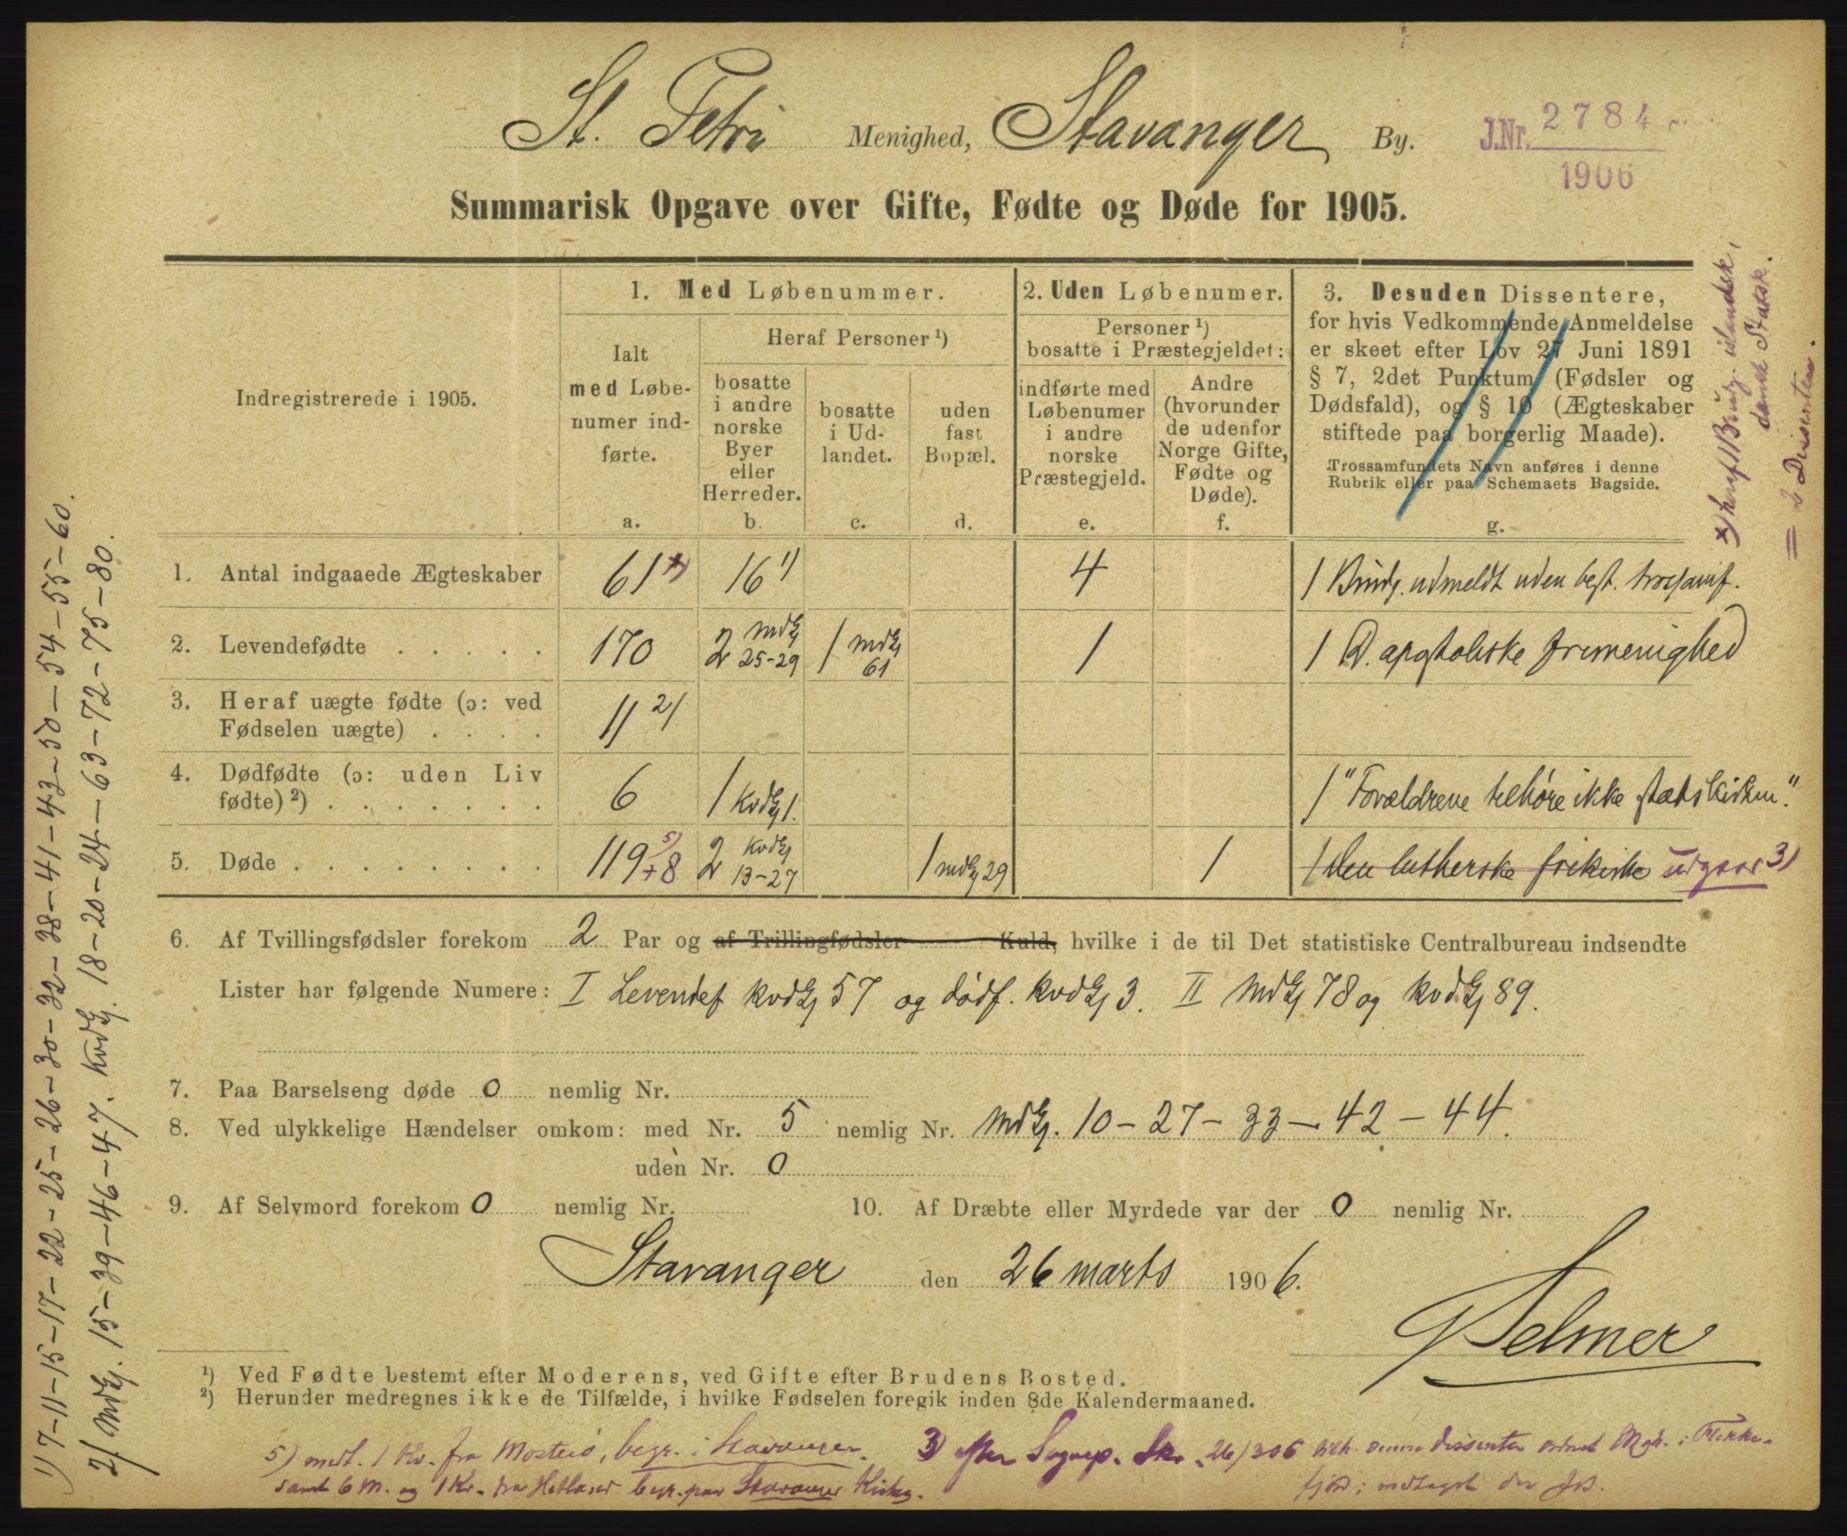 St. Petri Menighed, Stavanger By.
J.Nr. 2784
1906
Summarisk Opgave over Gifte, Fødte og Døde for 1905.
Indregistrerede i 1905.
1. Med Løbenummer.
Ialt med Løbenumer indførte.
a.
Heraf Personer ¹)
bosatte i andre norske Byer eller Herreder.
b.
bosatte i Udlandet.
c.
uden fast Bopæl.
d.
2. Uden Løbenumer.
Personer ¹)
bosatte i Præstegjeldet:
indførte med Løbenumer i andre norske Præstegjeld.
e.
Andre (hvorunder de udenfor Norge Gifte, Fødte og Døde).
f.
3. Desuden Dissentere,
for hvis Vedkommende Anmeldelse
er skeet efter Lov 27 Juni 1891
§ 7, 2det Punktum (Fødsler og
Dødsfald), og § 10 (Ægteskaber
stiftede paa borgerlig Maade).
Trossamfundets Navn anføres i denne
Rubrik eller paa Schemaets Bagside.
g.
1. Antal indgaaede Ægteskaber 61 *) 16 1) 4 1 Brudg. udmeldt uden best. trossamf.
2. Levendefødte . . . . . 170 2 mdkj 25-29 1 mdkj 61 1 1 D. apostoliske frimenighed
3. Heraf uægte fødte (ɔ: ved
Fødselen uægte) . . . . 11 2)
4. Dødfødte (ɔ: uden Liv
fødte) ²) . . . . . . . 6 1 kvdkj 1. 1 "Forældrene tilhøre ikke statskirken".
5. Døde . . . . . . . . 119 5) + 8 2 kvdkj 13-27 1 mdkj 29 1 1 den lutherske frikirke udgaar 3)
6. Af Tvillingsfødsler forekom 2 Par og af Trillingfødsler Kuld, hvilke i de til Det statistiske Centralbureau indsendte
Lister har følgende Numere: I Levendef kvdkj 57 og dödf. kvdkj 3. II Mdkj 78 og kvdkj 89.
7. Paa Barselseng døde 0 nemlig Nr.
8. Ved ulykkelige Hændelser omkom: med Nr. 5 nemlig Nr. Mdkj. 10 - 27 - 33 - 42 - 44.
uden Nr. 0
9. Af Selvmord forekom 0 nemlig Nr.
10. Af Dræbte eller Myrdede var der 0 nemlig Nr.
Stavanger den 26 marts 1906.
Selmer
¹) Ved Fødte bestemt efter Moderens, ved Gifte efter Brudens Bosted.
²) Herunder medregnes ikke de Tilfælde, i hvilke Fødselen foregik inden 8de Kalendermaaned.
5) medt. 1 Kv. fra Mosterö, begr. i Stavanger.
samt 6 M. og 1 Kv. fra Hetland begr. paa Stavanger Kirkeg.
3) efter Sognep. Skr. 26/3 06 dissenter i Flekke-
fjord; medtaget der
1) 7-11-15-17-22-25-26-30-32-38-41-43-50-54-55-60.
2) Mdkj. 15-39-46-47. Kvdkj. 18-20-24-63-72-75-80.
*) heraf 1 Brudg. islandsk,
dansk Statsk.
= 2 Dissentere.